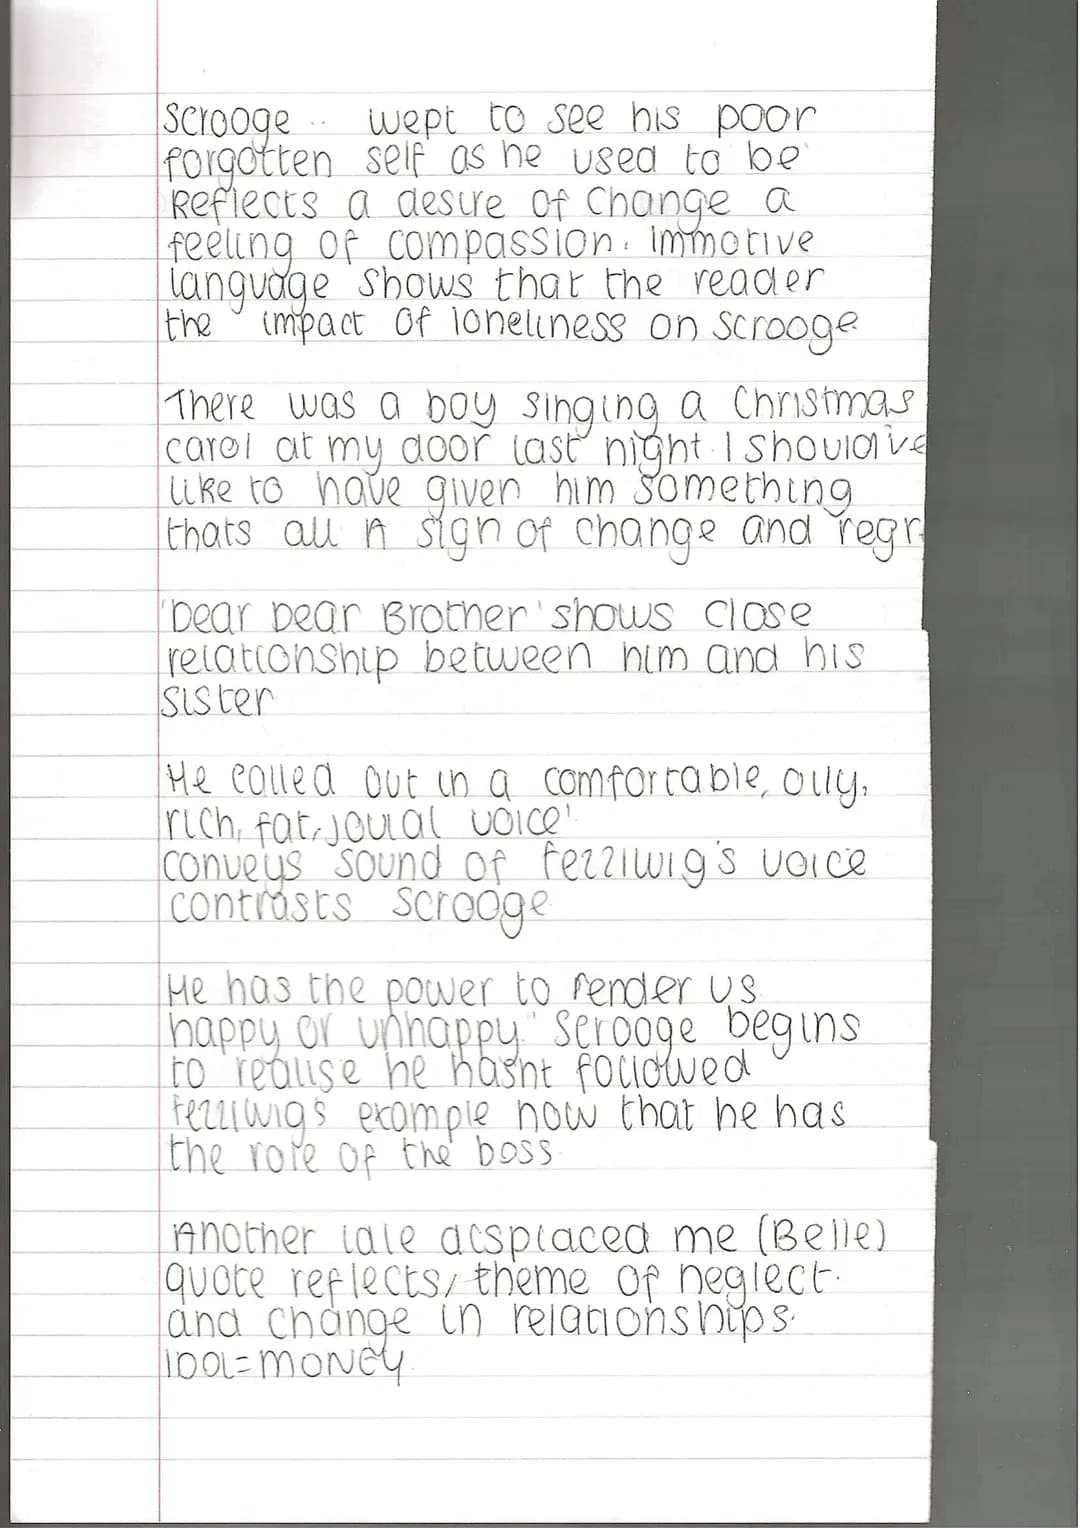 Scrooge .. wept to see his poor
forgotten self as he used to be
Reflects a desire of Change a
feeling of compassion. immotive
language shows that the reader
the impact of loneliness on scrooge
There was a boy singing a Christmas
carol at my door last night. I should've
like to have given him something
thats all A sign of change and regr
'Dear Dear Brother' shows close
relationship between him and his
sister
He called out in a comfortable, oily,
rich, fat, jovial voice'
conveys sound of fezziwig's voice
contrasts scrooge
He has the power to render us
happy or unhappy." Scrooge begins
to realise he hasnt followed
fezziwigs example now that he has
the role of the boss
Another me (Belle)
quote reflects, theme of neglect.
and change in relationships.
IDOL=MONEY.